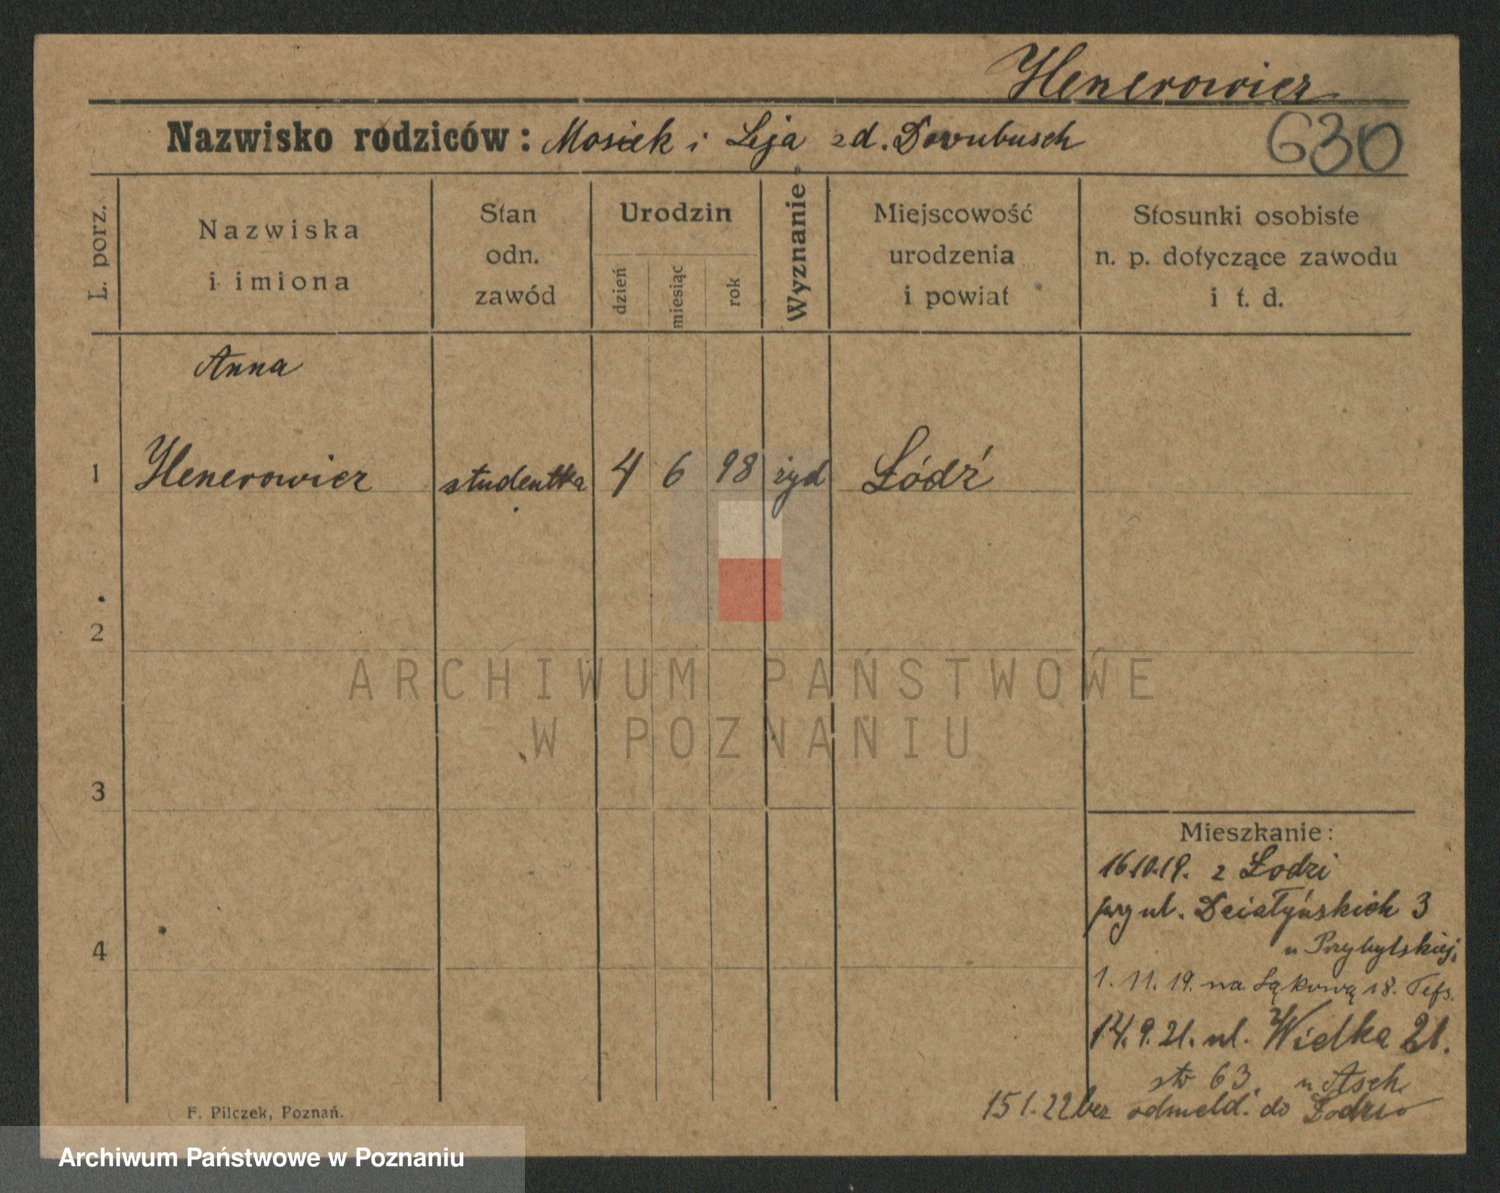 Henerowicz
Nazwisko rodziców: Mosiek i Leja zd. Dornbusch
630
L. porz.
Nazwiska
i imiona
Stan
odn.
zawód
Urodzin
dzień
miesiąc
rok
Wyznanie
Miejscowość
urodzenia
i powiat
Stosunki osobiste
n. p. dotyczące zawodu
i t. d.
Anna
1 Henerowicz studentka 4 6 98 żyd Łódź
2
ARCHIWUM PAŃSTWOWE
W POZNANIU
3
Mieszkanie:
16.10.19. z Łodzi
przy ul. Działyńskich 3
u Przybylskiej
4
1.11.19. na Łąkową 18.
14.9.21. ul. Wielka 21.
str 63. u Asch
15 1.22 bez odmeld. do Łodzi
F. Pilczek, Poznań.
Archiwum Państwowe w Poznaniu